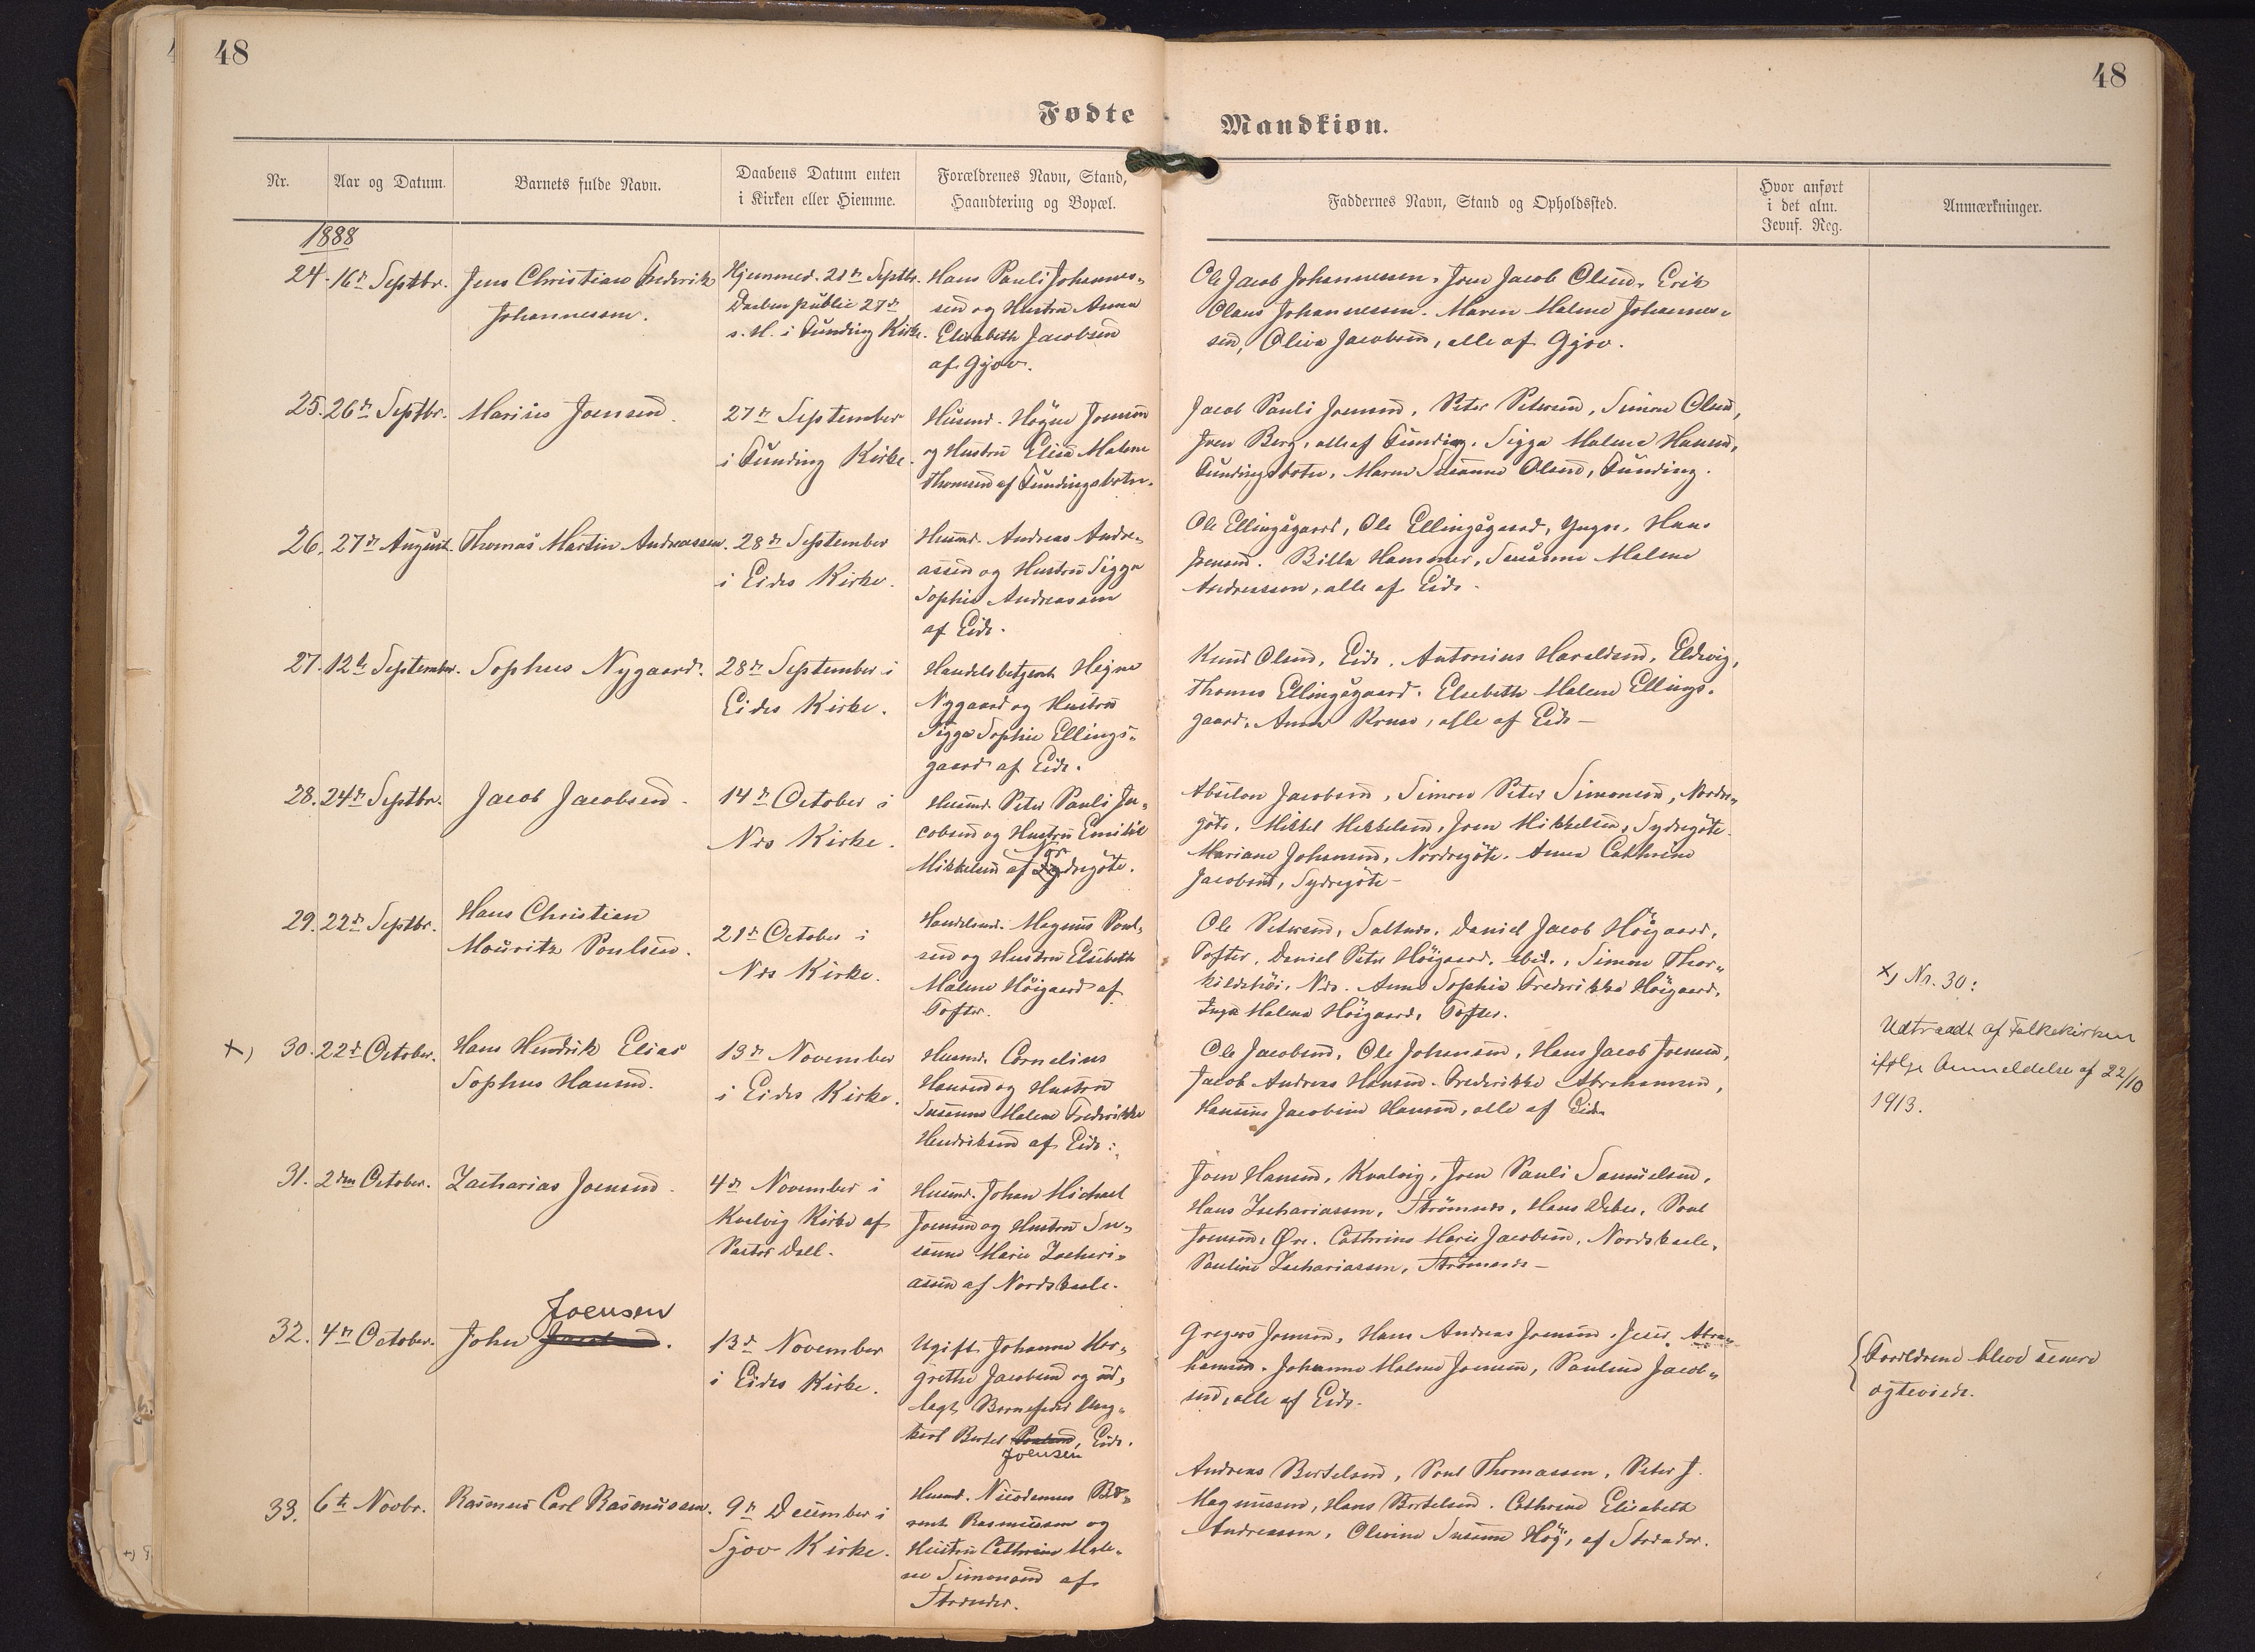 48
48
Fødte
Mandkiøn.
Nr.
Aar og Datum.
Barnets fulde Navn.
Daabens Datum enten
i Kirken eller Hiemme.
Forældrenes Navn, Stand,
Haandtering og Bopæl.
Faddernes Navn, Stand og Opholdssted.
Hvor anført
i det alm.
Jevnf. Reg.
Anmærkninger.
1888
24. 16de Septbr.
Jens Christian Frederik
Johannessen.
Hjemmed. 21de Septbr.
Daaben public 27de
s. M. i Funding Kirke.
Hans Pauli Johannes-
sen og Hustru Anna
Elisabeth Jacobsen
af Gjov.
Ole Jacob Johannessen, Joen Jacob Olsen, Erik
Claus Johannessen. Maren Malene Johannes-
sen, Oliva Jacobsen, alle af Gjov.
25. 26de Septbr.
Marius Joensen.
27de September
i Funding Kirke.
Husmd. Högne Joensen
og Hustru Elisa Malene
Thomsen af Fundingsbotn.
Jacob Pauli Joensen, Peter Petersen, Simon Olsen,
Joen Berg, alle af Funding. Sigga Malene Hansen,
Fundingsbotn, Maren Susanna Olsen, Funding.
26. 27de August.
Thomas Martin Andreassen.
28de September
i Eides Kirke.
Husmd. Andreas Andre-
assen og Hustru Sigga
Sophie Andreassen
af Eide.
Ole Ellingsgaard, Ole Ellingsgaard, Yngre, Hans
Joensen. Billa Hammer, Susanna Malene
Andreassen, alle af Eide.
27. 12te September.
Sophus Nygaard.
28de September i
Eides Kirke.
Handelsbetjent Hejne
Nygaard og Hustru
Sigga Sophie Ellings-
gaard af Eide.
Knud Olsen, Eide. Antonius Haraldsen, Eldevig,
Thomas Ellingsgaard. Elsebeth Malene Ellings-
gaard, Anna Kruse, alle af Eide –
28. 24de Septbr.
Jacob Jacobsen.
14de October i
Nes Kirke.
Husmd. Peter Pauli Ja-
cobsen og Hustru Emilie
Nor
Mikkelsen af Sydregöte.
Absalon Jacobsen, Simon Peter Simonsen, Nordre-
göte. Mikkel Mikkelsen, Joen Mikkelsen, Sydregöte.
Mariane Johansen, Nordregöte. Anna Cathrine
Jacobsen, Sydregöte –
29. 22de Septbr.
Hans Christian
Mouritz Poulsen.
21de October i
Nes Kirke.
Handelsmd. Magnus Poul-
sen og Hustru Elsebeth
Malene Höigaard af
Tofter.
Ole Petersen, Saltnes, Daniel Jacob Höigaard,
Tofter, Daniel Peter Höigaard, ibid., Simon Thor-
kildshöi, Nes. Anna Sophie Frederikke Höigaard,
Inga Malene Höigaard, Tofter.
x) Nr. 30:
Udtraadt af Folkekirken
ifölge Anmeldelse af 22/10
1913.
x) 30. 22de October.
Hans Hendrik Elias
Sophus Hansen.
13de November
i Eides Kirke.
Husmd. Cornelius
Hansen og Hustru
Susanne Malene Frederikke
Hendriksen af Eide.
Ole Jacobsen, Ole Johansen, Hans Jacob Joensen,
Jacob Andreas Hansen. Frederikke Abrahamsen,
Hansine Jacobine Hansen, alle af Eide.
31. 2den October.
Zacharias Joensen.
4de November i
Kvalvig Kirke af
Pastor Dall.
Husmd. Johan Michael
Joensen og Hustru Su-
sanne Marie Zachari-
assen af Nordskaale.
Joen Hansen, Kvalvig, Joen Pauli Samuelsen,
Hans Zachariassen, Strömnes, Hans Debes, Poul
Joensen, Öre. Cathrine Marie Jacobsen, Nordskaale,
Pauline Zachariassen, Strömnes –
Joensen
32. 4de October.
John
13de November
i Eides Kirke.
Ugift Johanne Mar-
grethe Jacobsen og ud-
lagt Barnefader Ung-
karl Bertel Poulsen, Eide.
Joensen
Gregers Joensen, Hans Andreas Joensen, Abra-
hamsen. Johanne Malene Joensen, Pauline Jacob-
sen, alle af Eide.
Forældrene bleve senere
ægteviede.
33. 6te Novbr.
Rasmus Carl Rasmussen.
9de December i
Sjov Kirke.
Husmd. Nicodemus Be-
rent Rasmussen og
Hustru Cathrine Male-
ne Simonsen af
Strender.
Andreas Bertelsen, Poul Thomassen, Peter J.
Magnussen, Hans Bertelsen. Cathrine Elisabeth
Andreassen, Olivine Susanne Höj, af Strender.